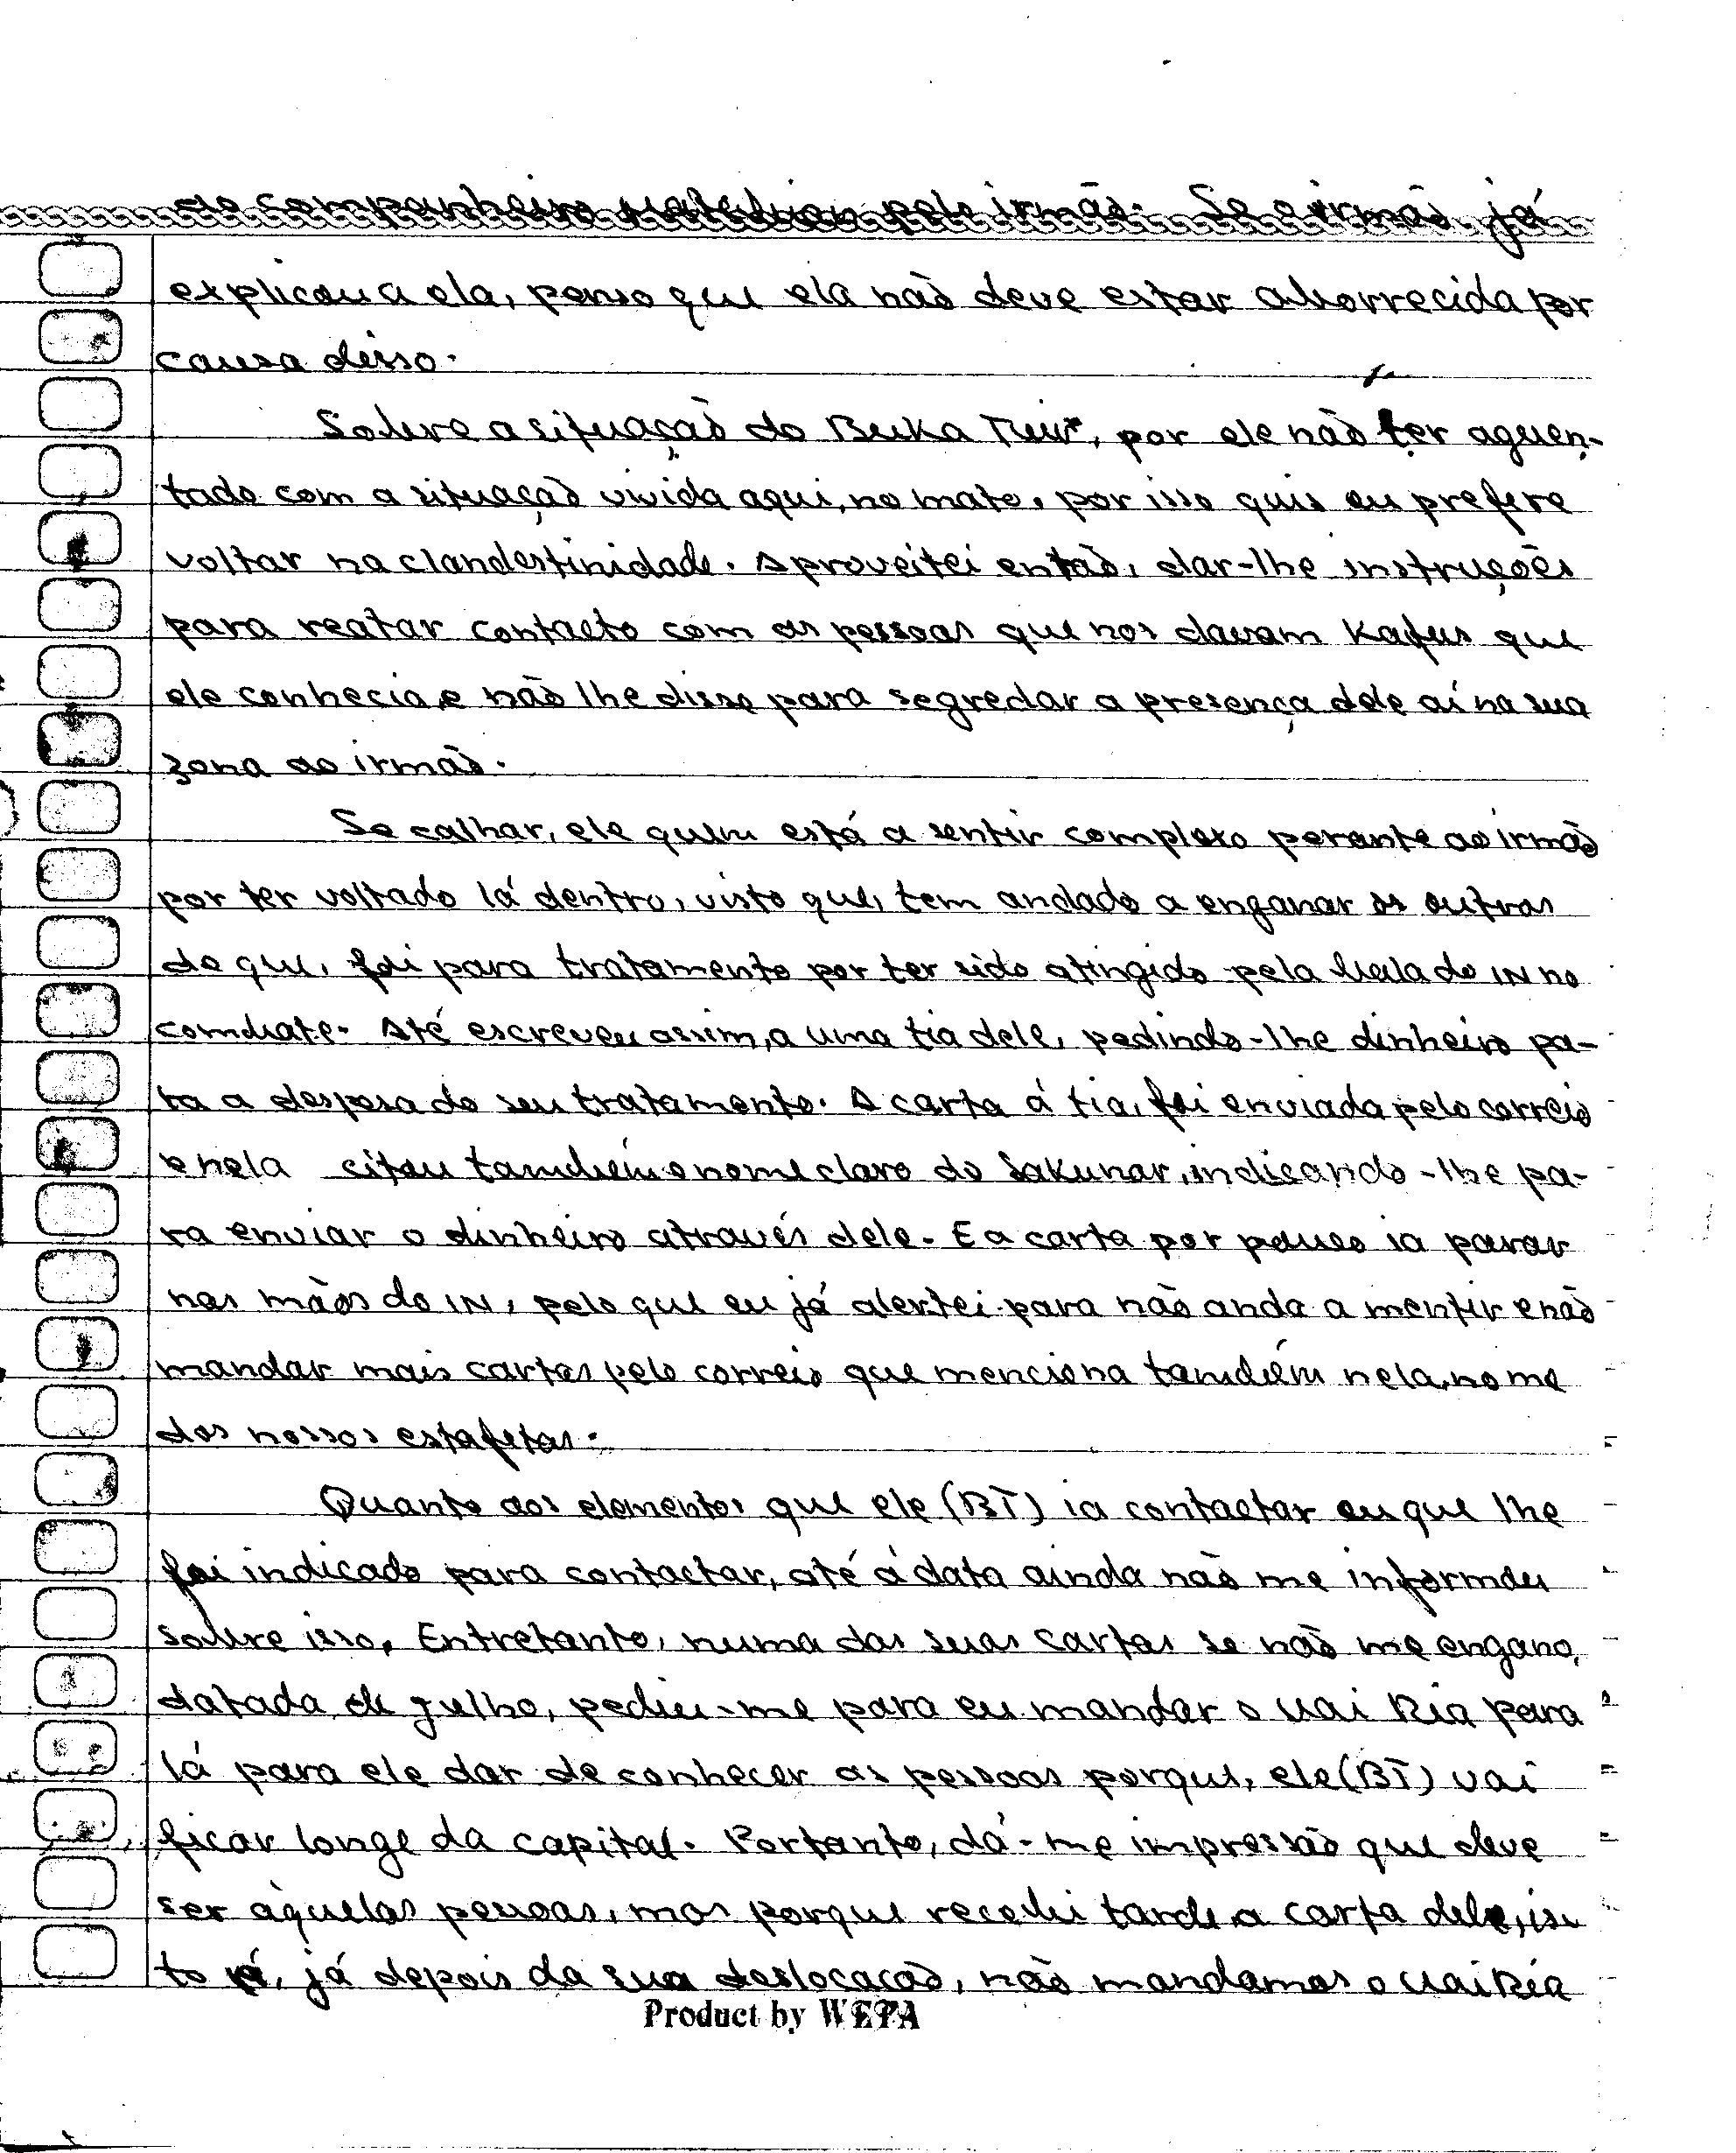 do companheiro pelo irmão. Se o irmão já
explicou a ela, penso que ela não deve estar aborrecida por
causa disso.
Sobre a situação do Buka Tuir, por ele não ter aguen-
tado com a situação vivida aqui, no mato, por isso quis ou prefere
voltar na clandestinidade. Aproveitei então, dar-lhe instruções
para reatar contacto com as pessoas que nos davam Kafus que
ele conhecia, e não lhe disse para segredar a presença dele aí na sua
zona ao irmão.
Se calhar, ele quem está a sentir complexo perante ao irmão
por ter voltado lá dentro, visto que, tem andado a enganar os outros
de que, foi para tratamento por ter sido atingido pela bala do IN no
combate. Até escreveu assim, a uma tia dele, pedindo-lhe dinheiro pa-
ra a despesa do seu tratamento. A carta á tia, foi enviada pelo correio
e nela citou também o nome claro do Sakunar, indicando-lhe pa-
ra enviar o dinheiro através dele. E a carta por pouco ia parar
nas mãos do IN, pelo que eu já alertei para não anda a mentir e não
mandar mais cartas pelo correio que menciona também nela, nome
dos nossos estafetas.
Quanto aos elementos que ele (BT) ia contactar ou que lhe
foi indicado para contactar, até á data ainda não me informou
sobre isso. Entretanto, numa das suas cartas se não me engano,
datada de Julho, pediu-me para eu mandar o Uai Ria para
lá para ele dar de conhecer as pessoas porque, ele (BT) vai
ficar longe da capital. Portanto, dá-me impressão que deve
ser àquelas pessoas, mas porque recebi tarde a carta dele, is
to é, já depois da sua deslocação, não mandamos o Uai Ria
Product by WEPA